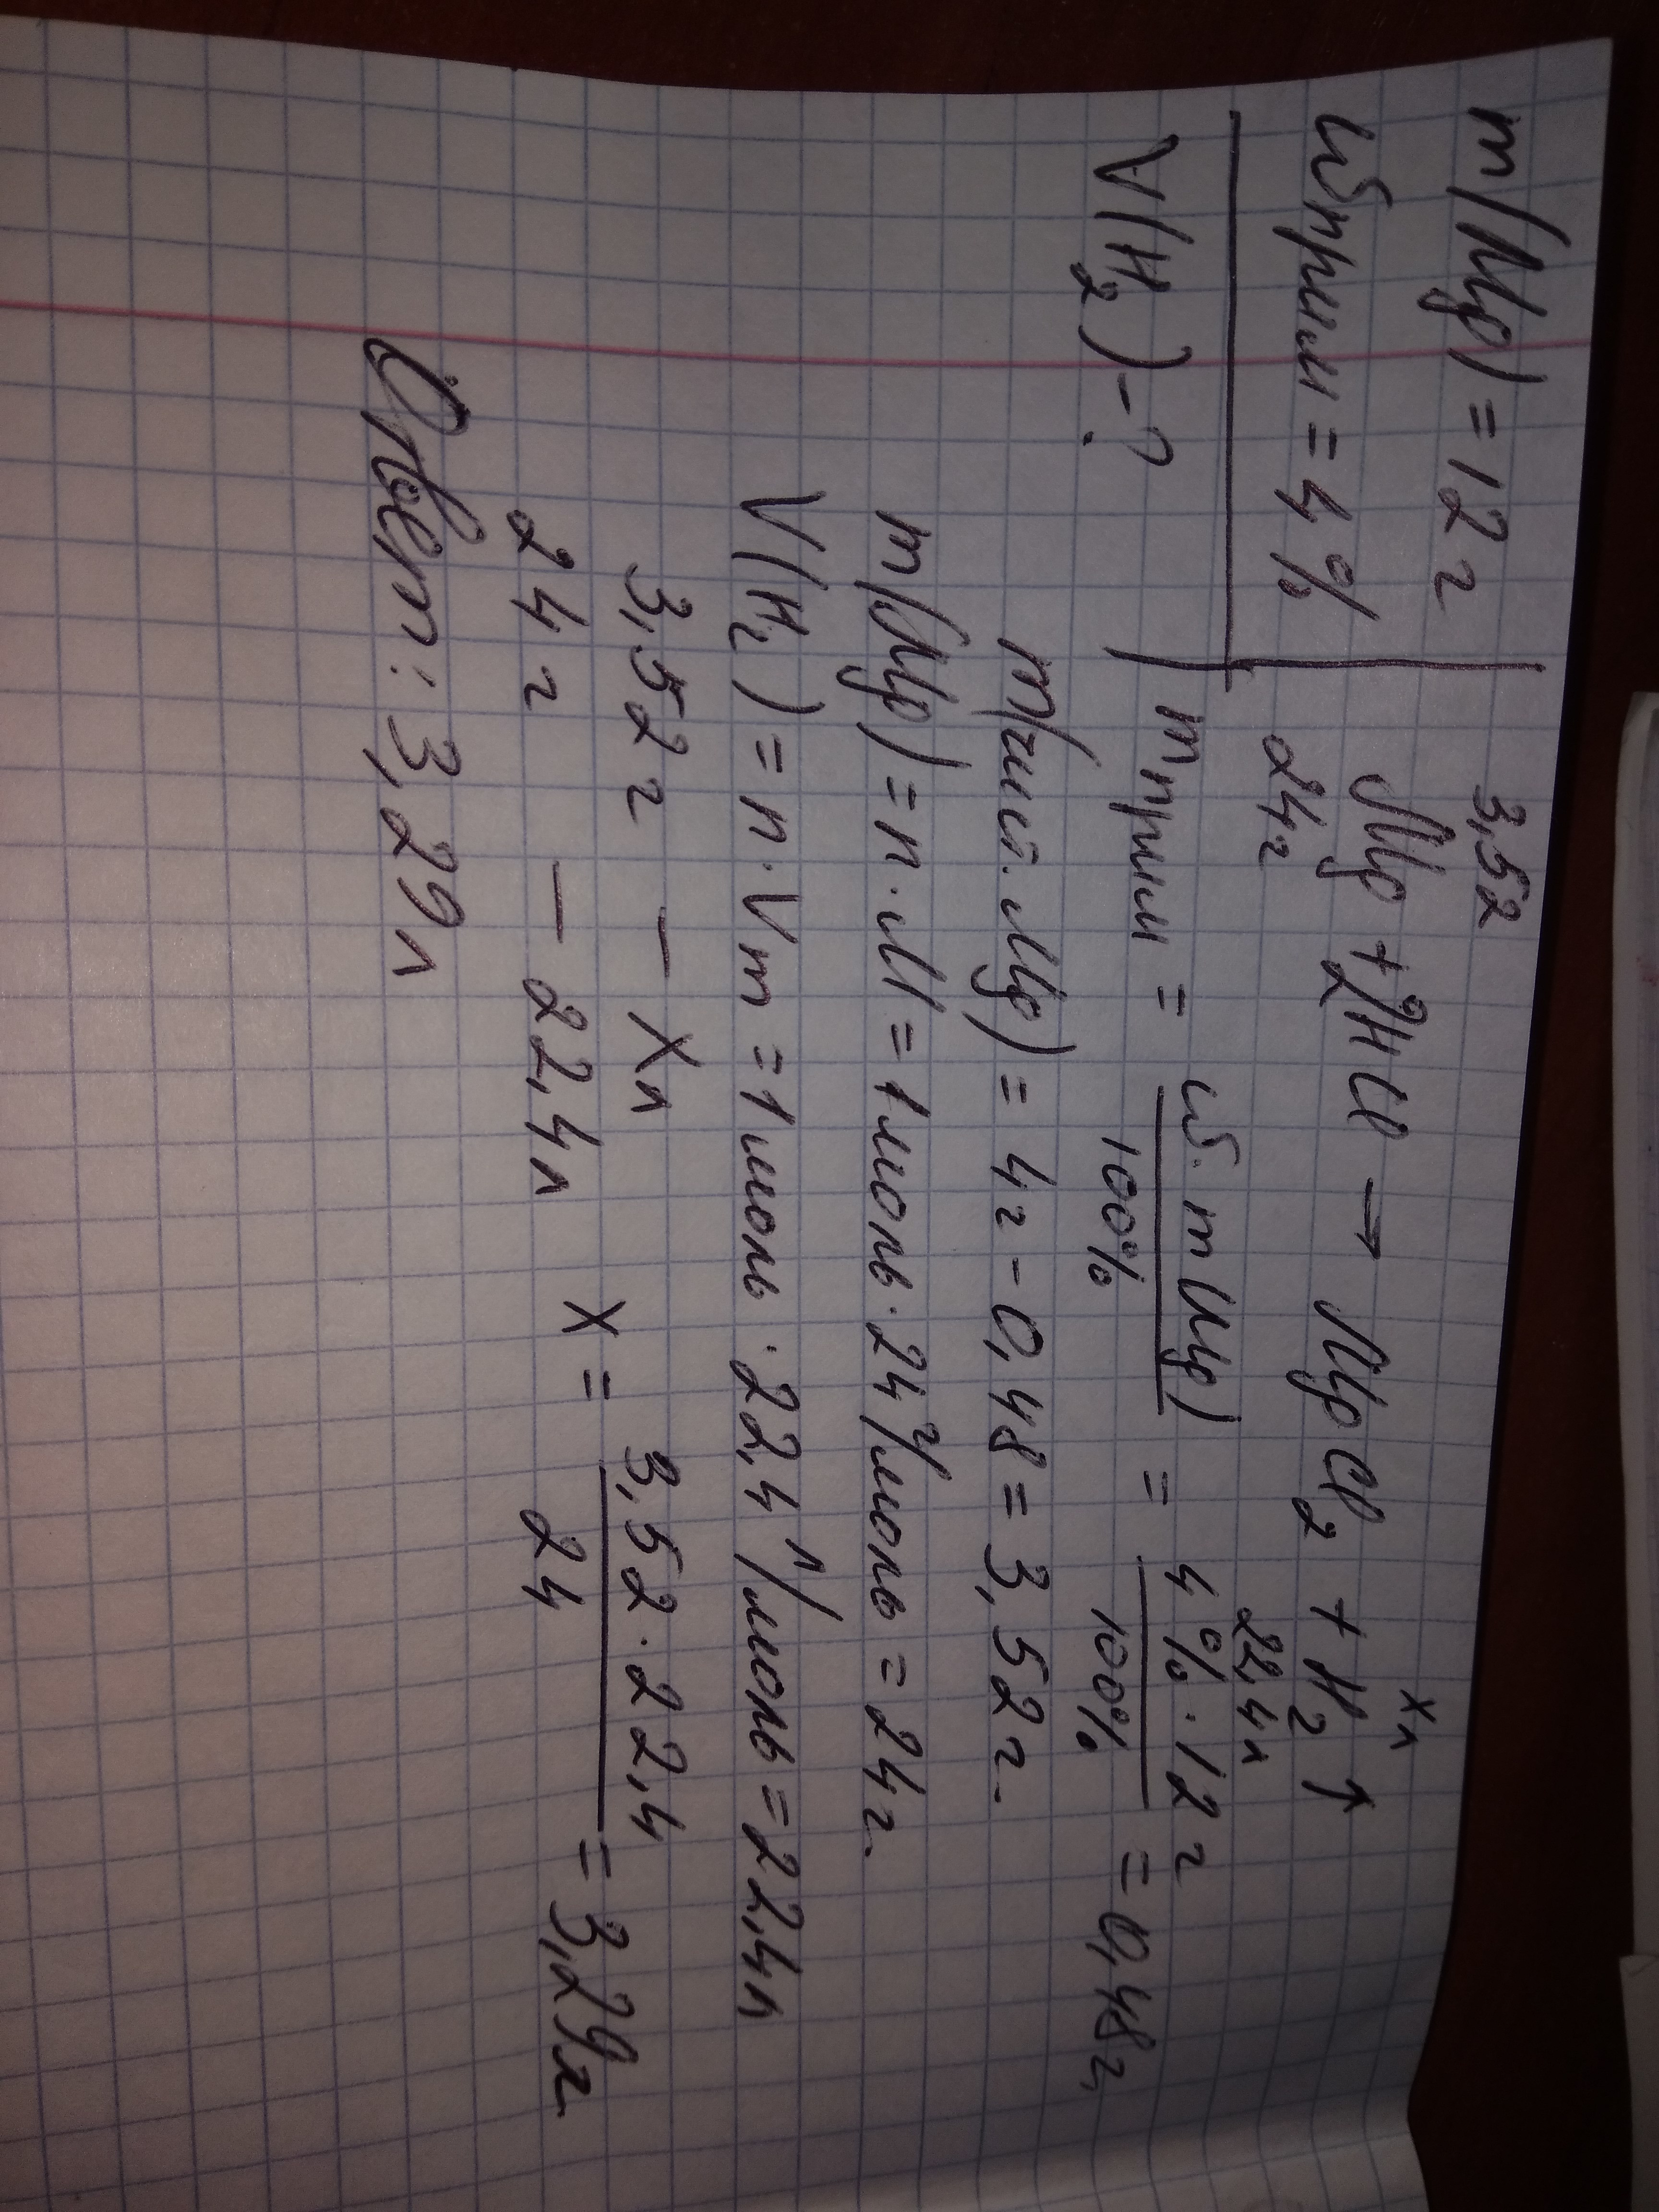 m(Mg) = 12 г
ωприм = 4%
V(H₂) - ?
3,52
xл
Mg + 2HCl → MgCl₂ + H₂↑
24г
22,4л
mприм = ω·m(Mg)/100% = 4%·12г/100% = 0,48г,
m(чист. Mg) = 4г - 0,48 = 3,52г.
m(Mg) = n·M = 1моль·24г/моль = 24г.
V(H₂) = n·Vm = 1моль·22,4 л/моль = 22,4л
3,52г — xл
24г — 22,4л
x = 3,52·22,4/24 = 3,29л
Ответ: 3,29л